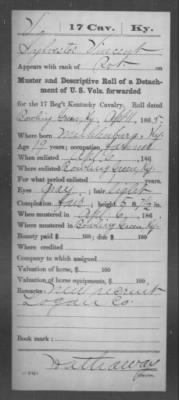 V | 17 Cav. | Ky.
Sylvester Vincent
Appears with rank of Rect on
Muster and Descriptive Roll of a Detachment
of U. S. Vols. forwarded
for the 17 Reg't Kentucky Cavalry. Roll dated
Bowling Green Ky. Apl 1, 1865
Where born Muhlenberg, Ky.
Age 19 years; occupation Farmer
When enlisted Apl 186
Where enlisted Bowling Green, Ky.
For what period enlisted years.
Eyes Gray; hair Light
Complexion Fair; height 5 ft. in.
When mustered in Apl. 6, 186
Where mustered in Bowling Green, Ky.
Bounty paid $ 100; due $ 100
Where credited
Company to which assigned
Valuation of horse, $ 100
Valuation of horse equipments, $ 100
Remarks: New recruit
Logan Co.
Book mark:
Hathaway